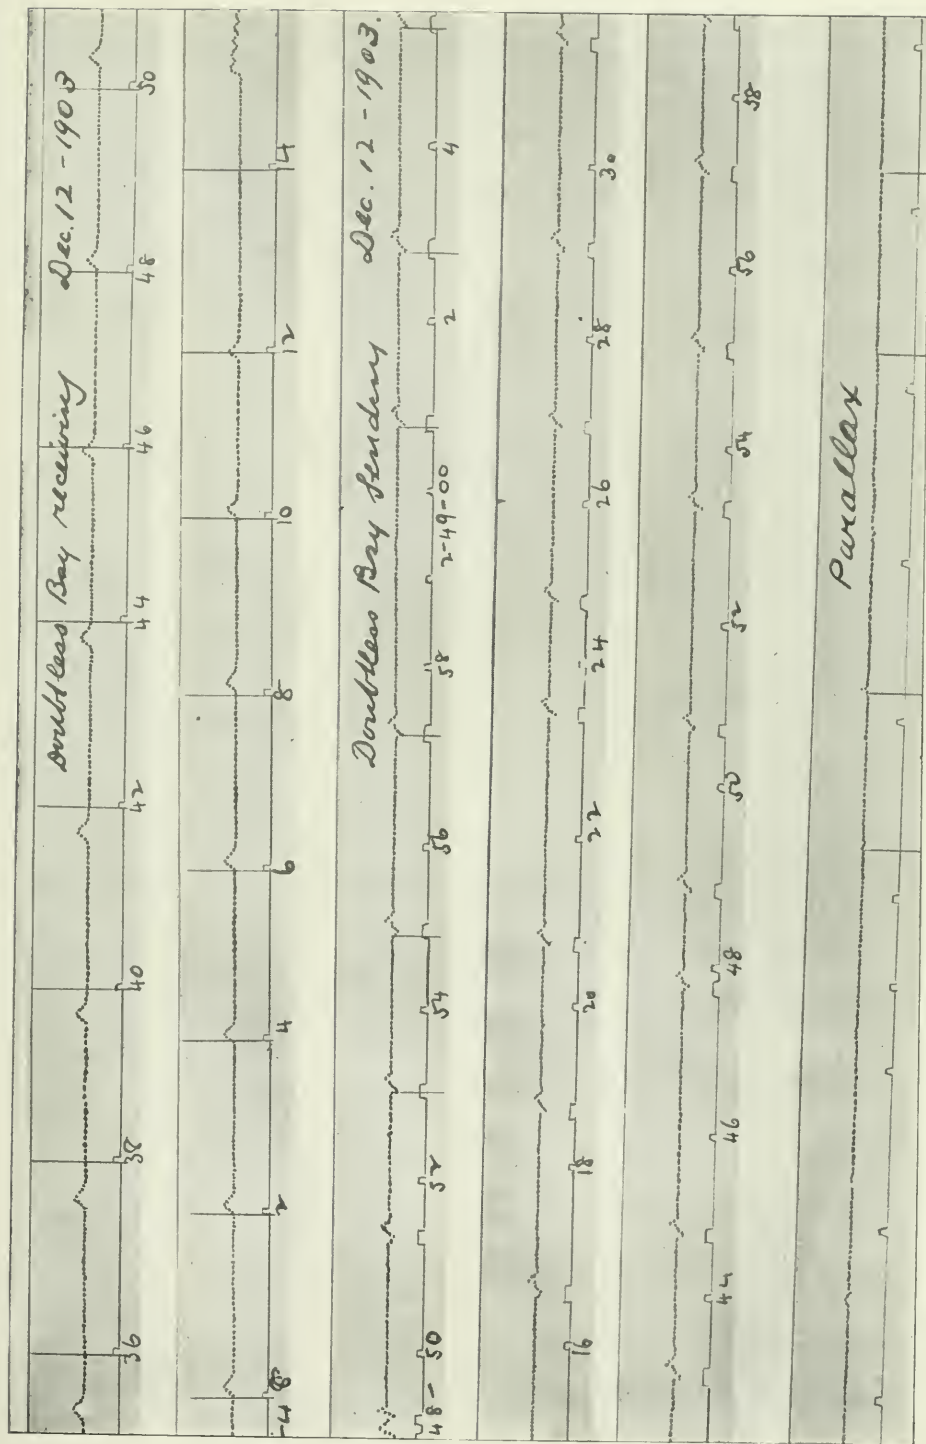 Doubtless Bay receiving Dec. 12 - 1903
36 38 40 42 44 46 48 50
-48 2 4 6 8 10 12 14
Doubtless Bay Sending Dec. 12 - 1903.
48- 50 52 54 56 58 2-49-00 2 4
16 18 20 22 24 26 28 30
44 46 48 50 52 54 56 58
Parallax